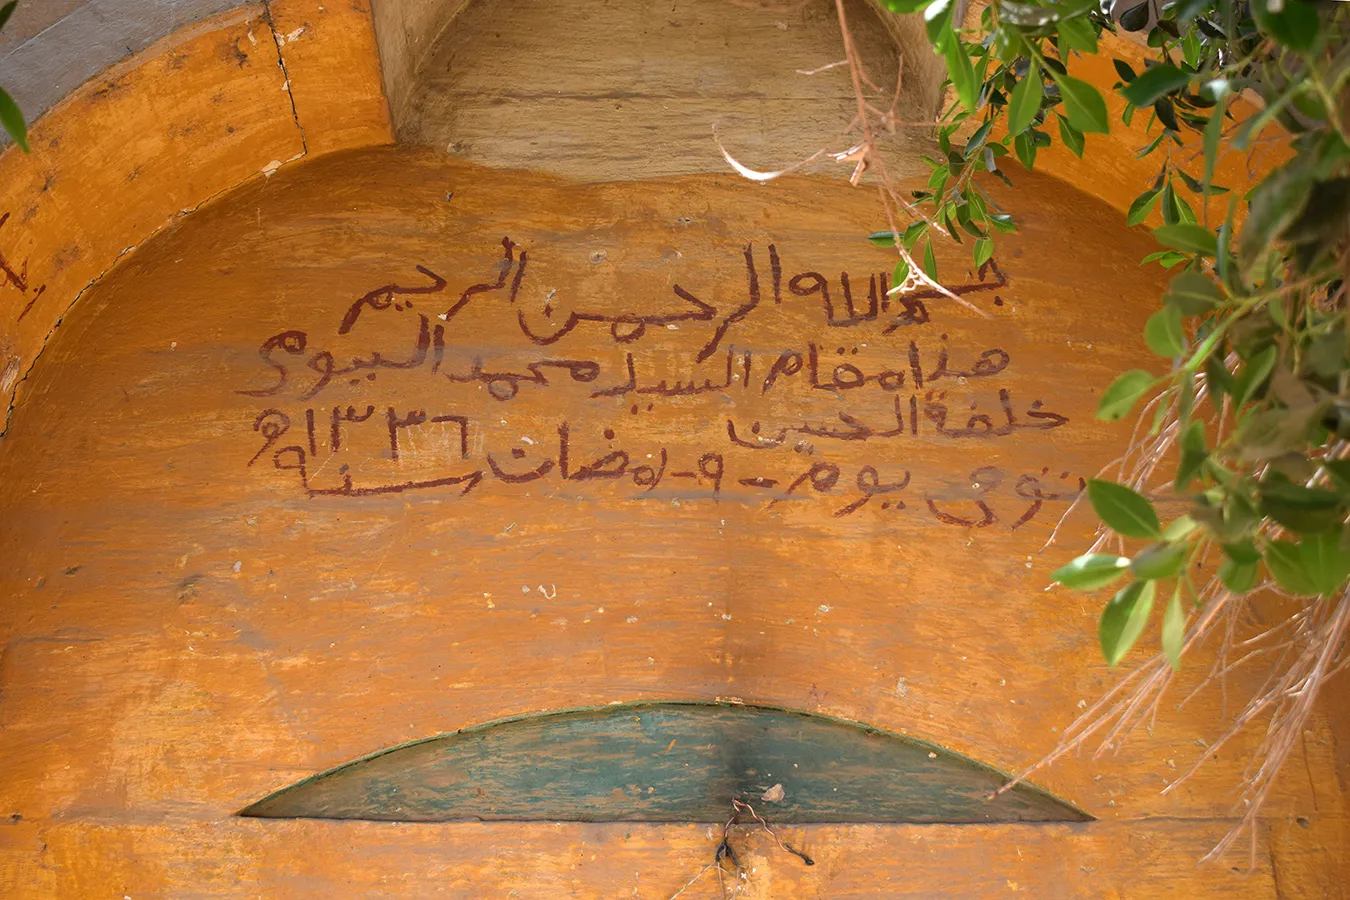 بسم الله الرحمن الرحيم
هذا مقام السيد محمد البيومي
خلفة الحسين ١٣٣٦ ه
توفى يوم - ٩ - رمضان سنة